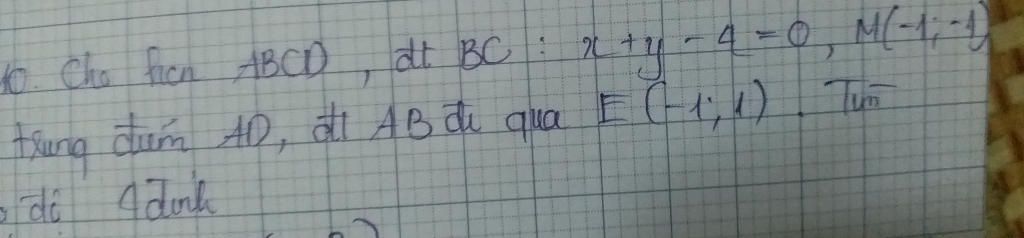 10. Cho hcn ABCD, đt BC : x + y - 4 = 0, M(-1; -1)
trung điểm AD, đt AB đi qua E (-1; 1). Tìm
đỉnh